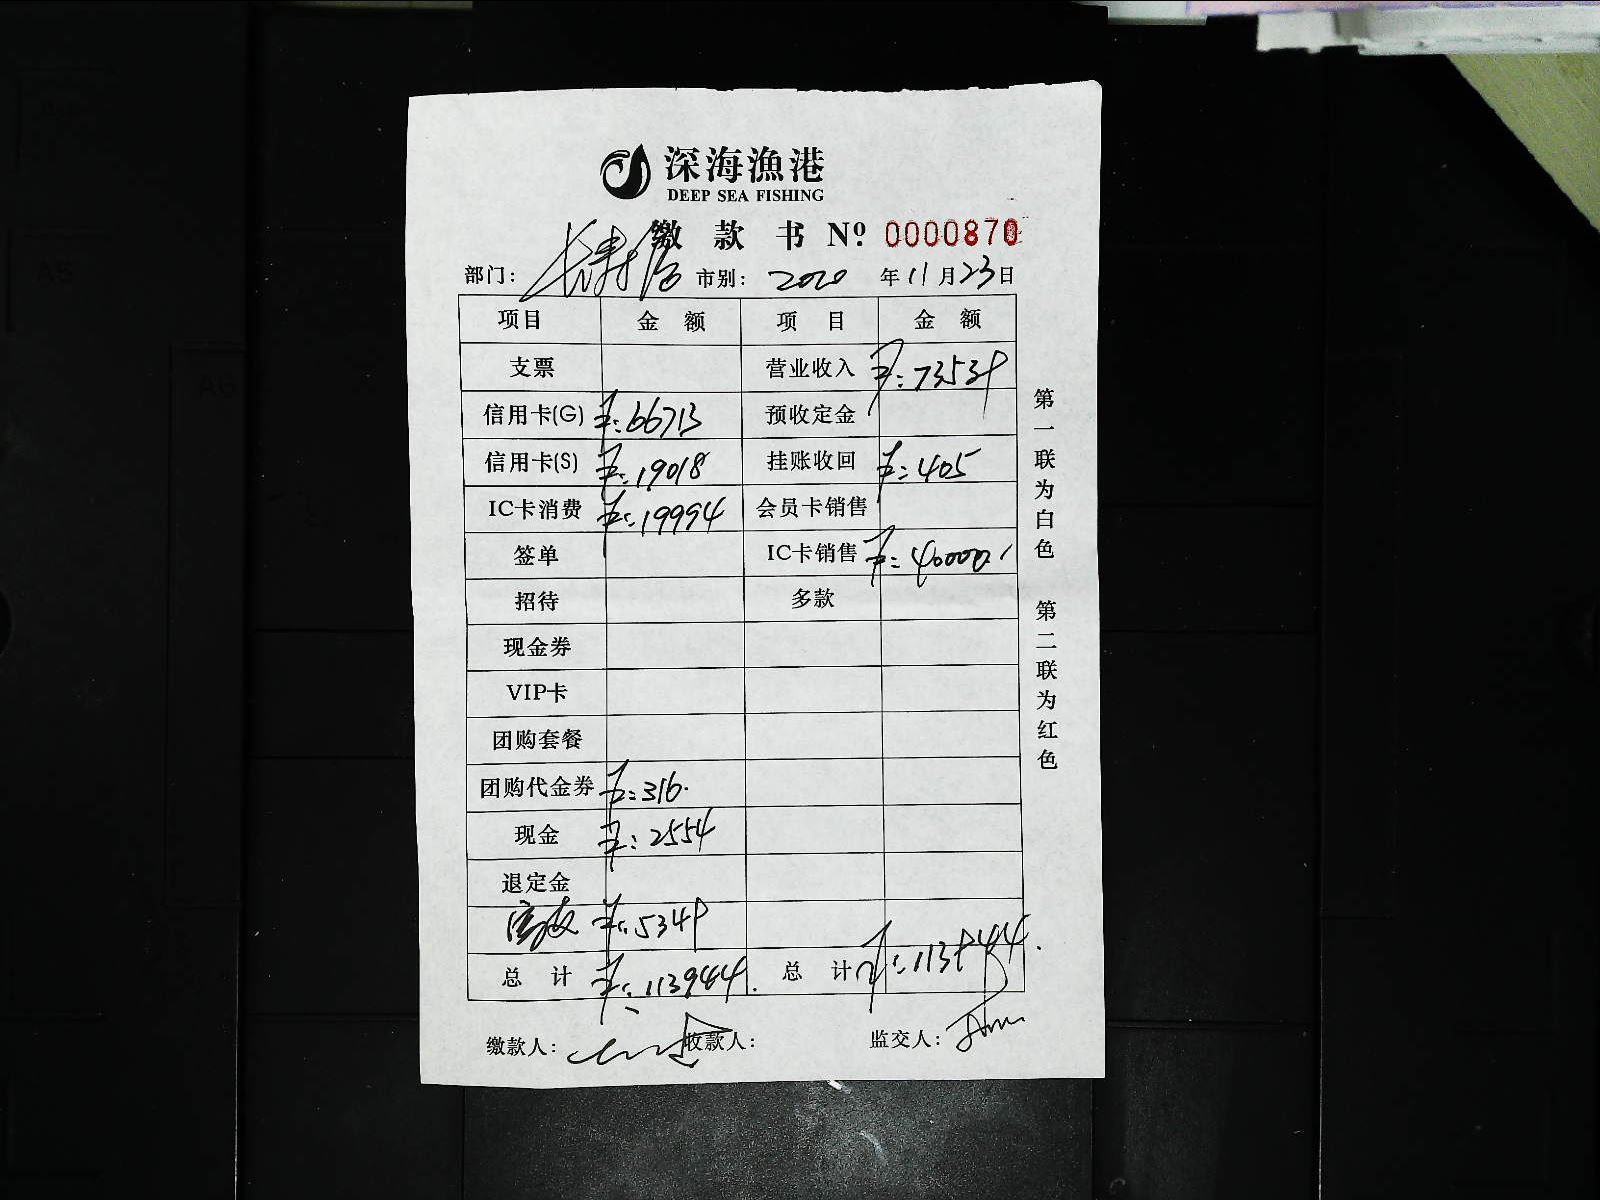 深海漁港
DEEP SEA FISHING
缴款书 Nº 0000870
部门: 市别: 2020 年 11 月 23 日
项目 金额 项目 金额
支票 营业收入 ¥:73539
信用卡(G) ¥:66713 预收定金
信用卡(S) ¥:19018 挂账收回 ¥:405
IC卡消费 ¥:19994 会员卡销售
签单 IC卡销售 ¥:40000
招待 多款
现金券
VIP卡
团购套餐
团购代金券 ¥:316
现金 ¥:2554
退定金
¥:5349
总计 ¥:113944. 总计 ¥:113944.
缴款人: 收款人: 监交人:
第一联为白色 第二联为红色